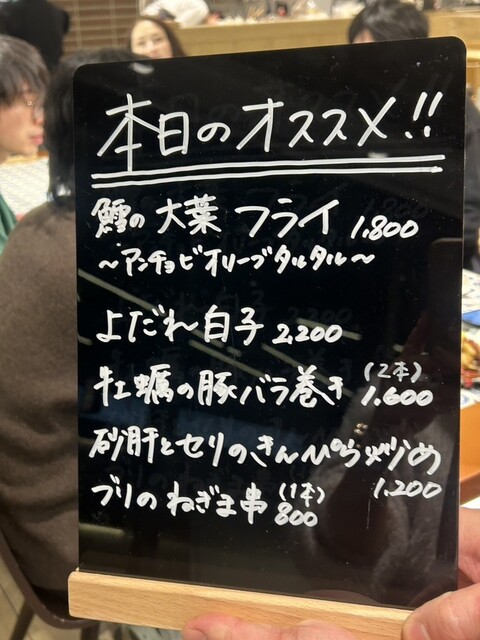 本日のオススメ!!
鱈の大葉フライ 1,800
〜アンチョビオリーブタルタル〜
よだれ白子 2,200
牡蠣の豚バラ巻き (2本) 1,600
砂肝とセリのきんぴら炒め 1,200
ブリのねぎま串 (1本) 800